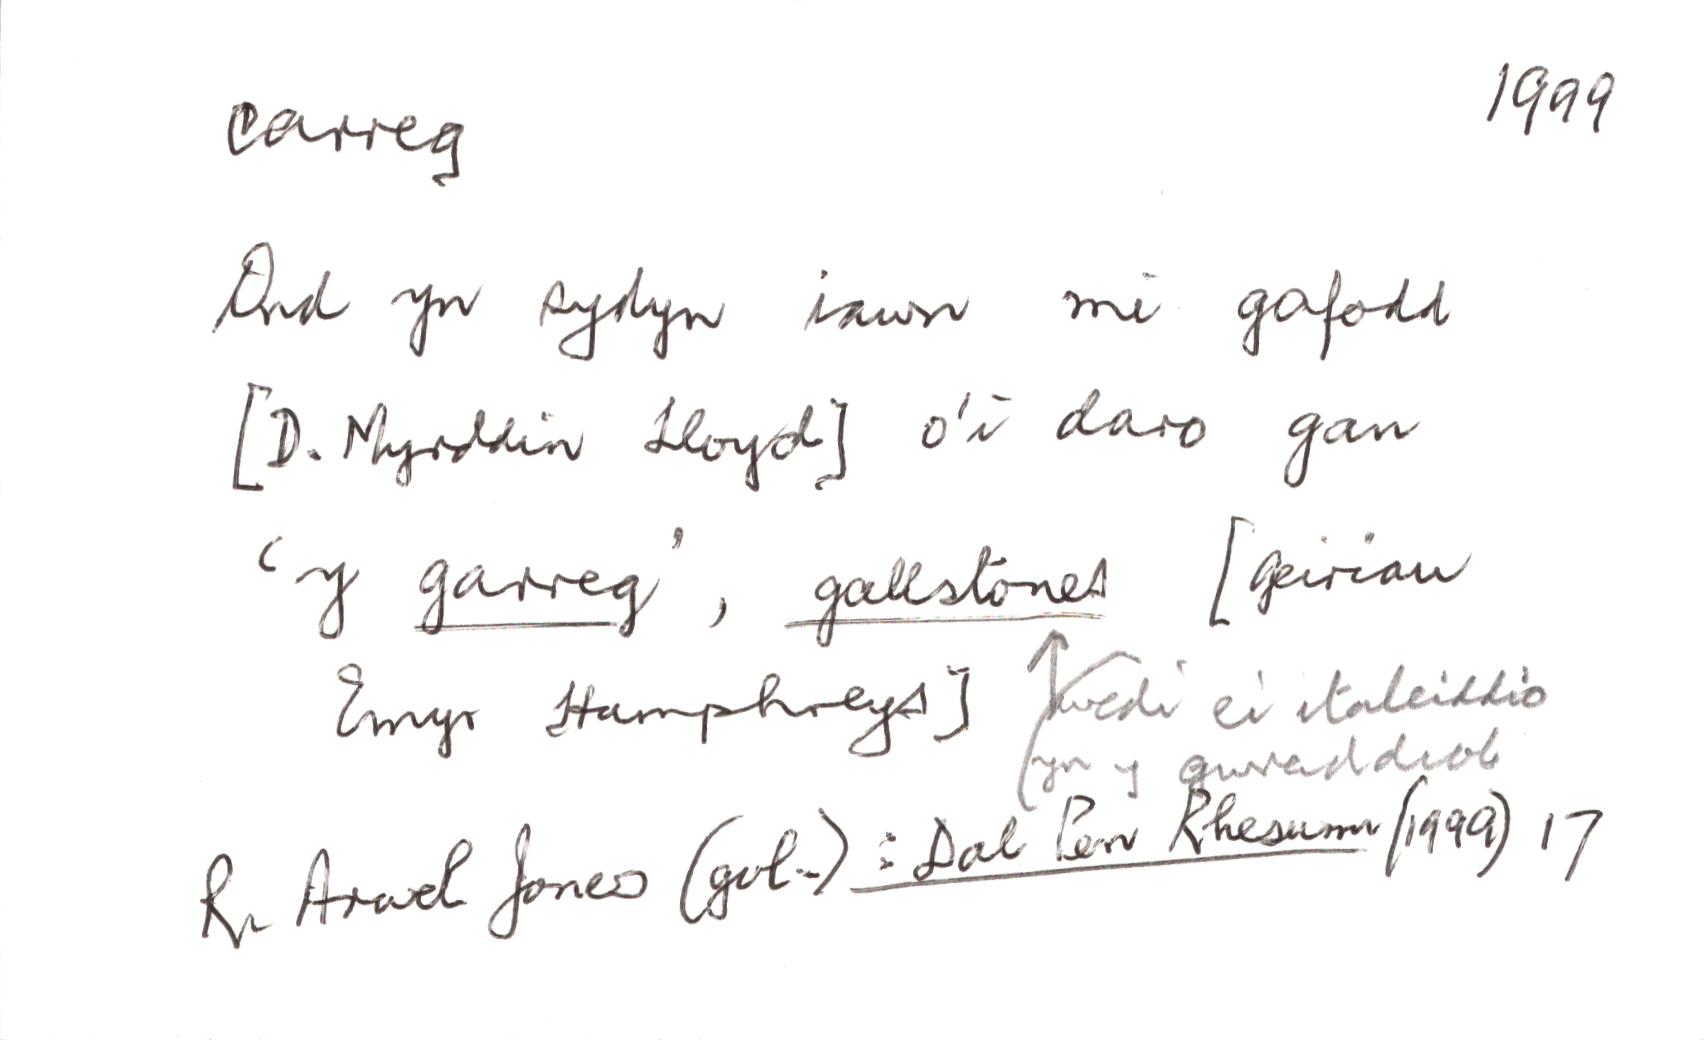 carreg 1999
Ond yn sydyn iawn mi gafodd
[D. Myrddin Lloyd] o'i daro gan
'y garreg', gallstones [geiriau
Emyr Humphreys] wedi ei italeiddio
yn y gwreiddiol
R. Arwel Jones (gol.): Dal Pen Rheswm (1999) 17